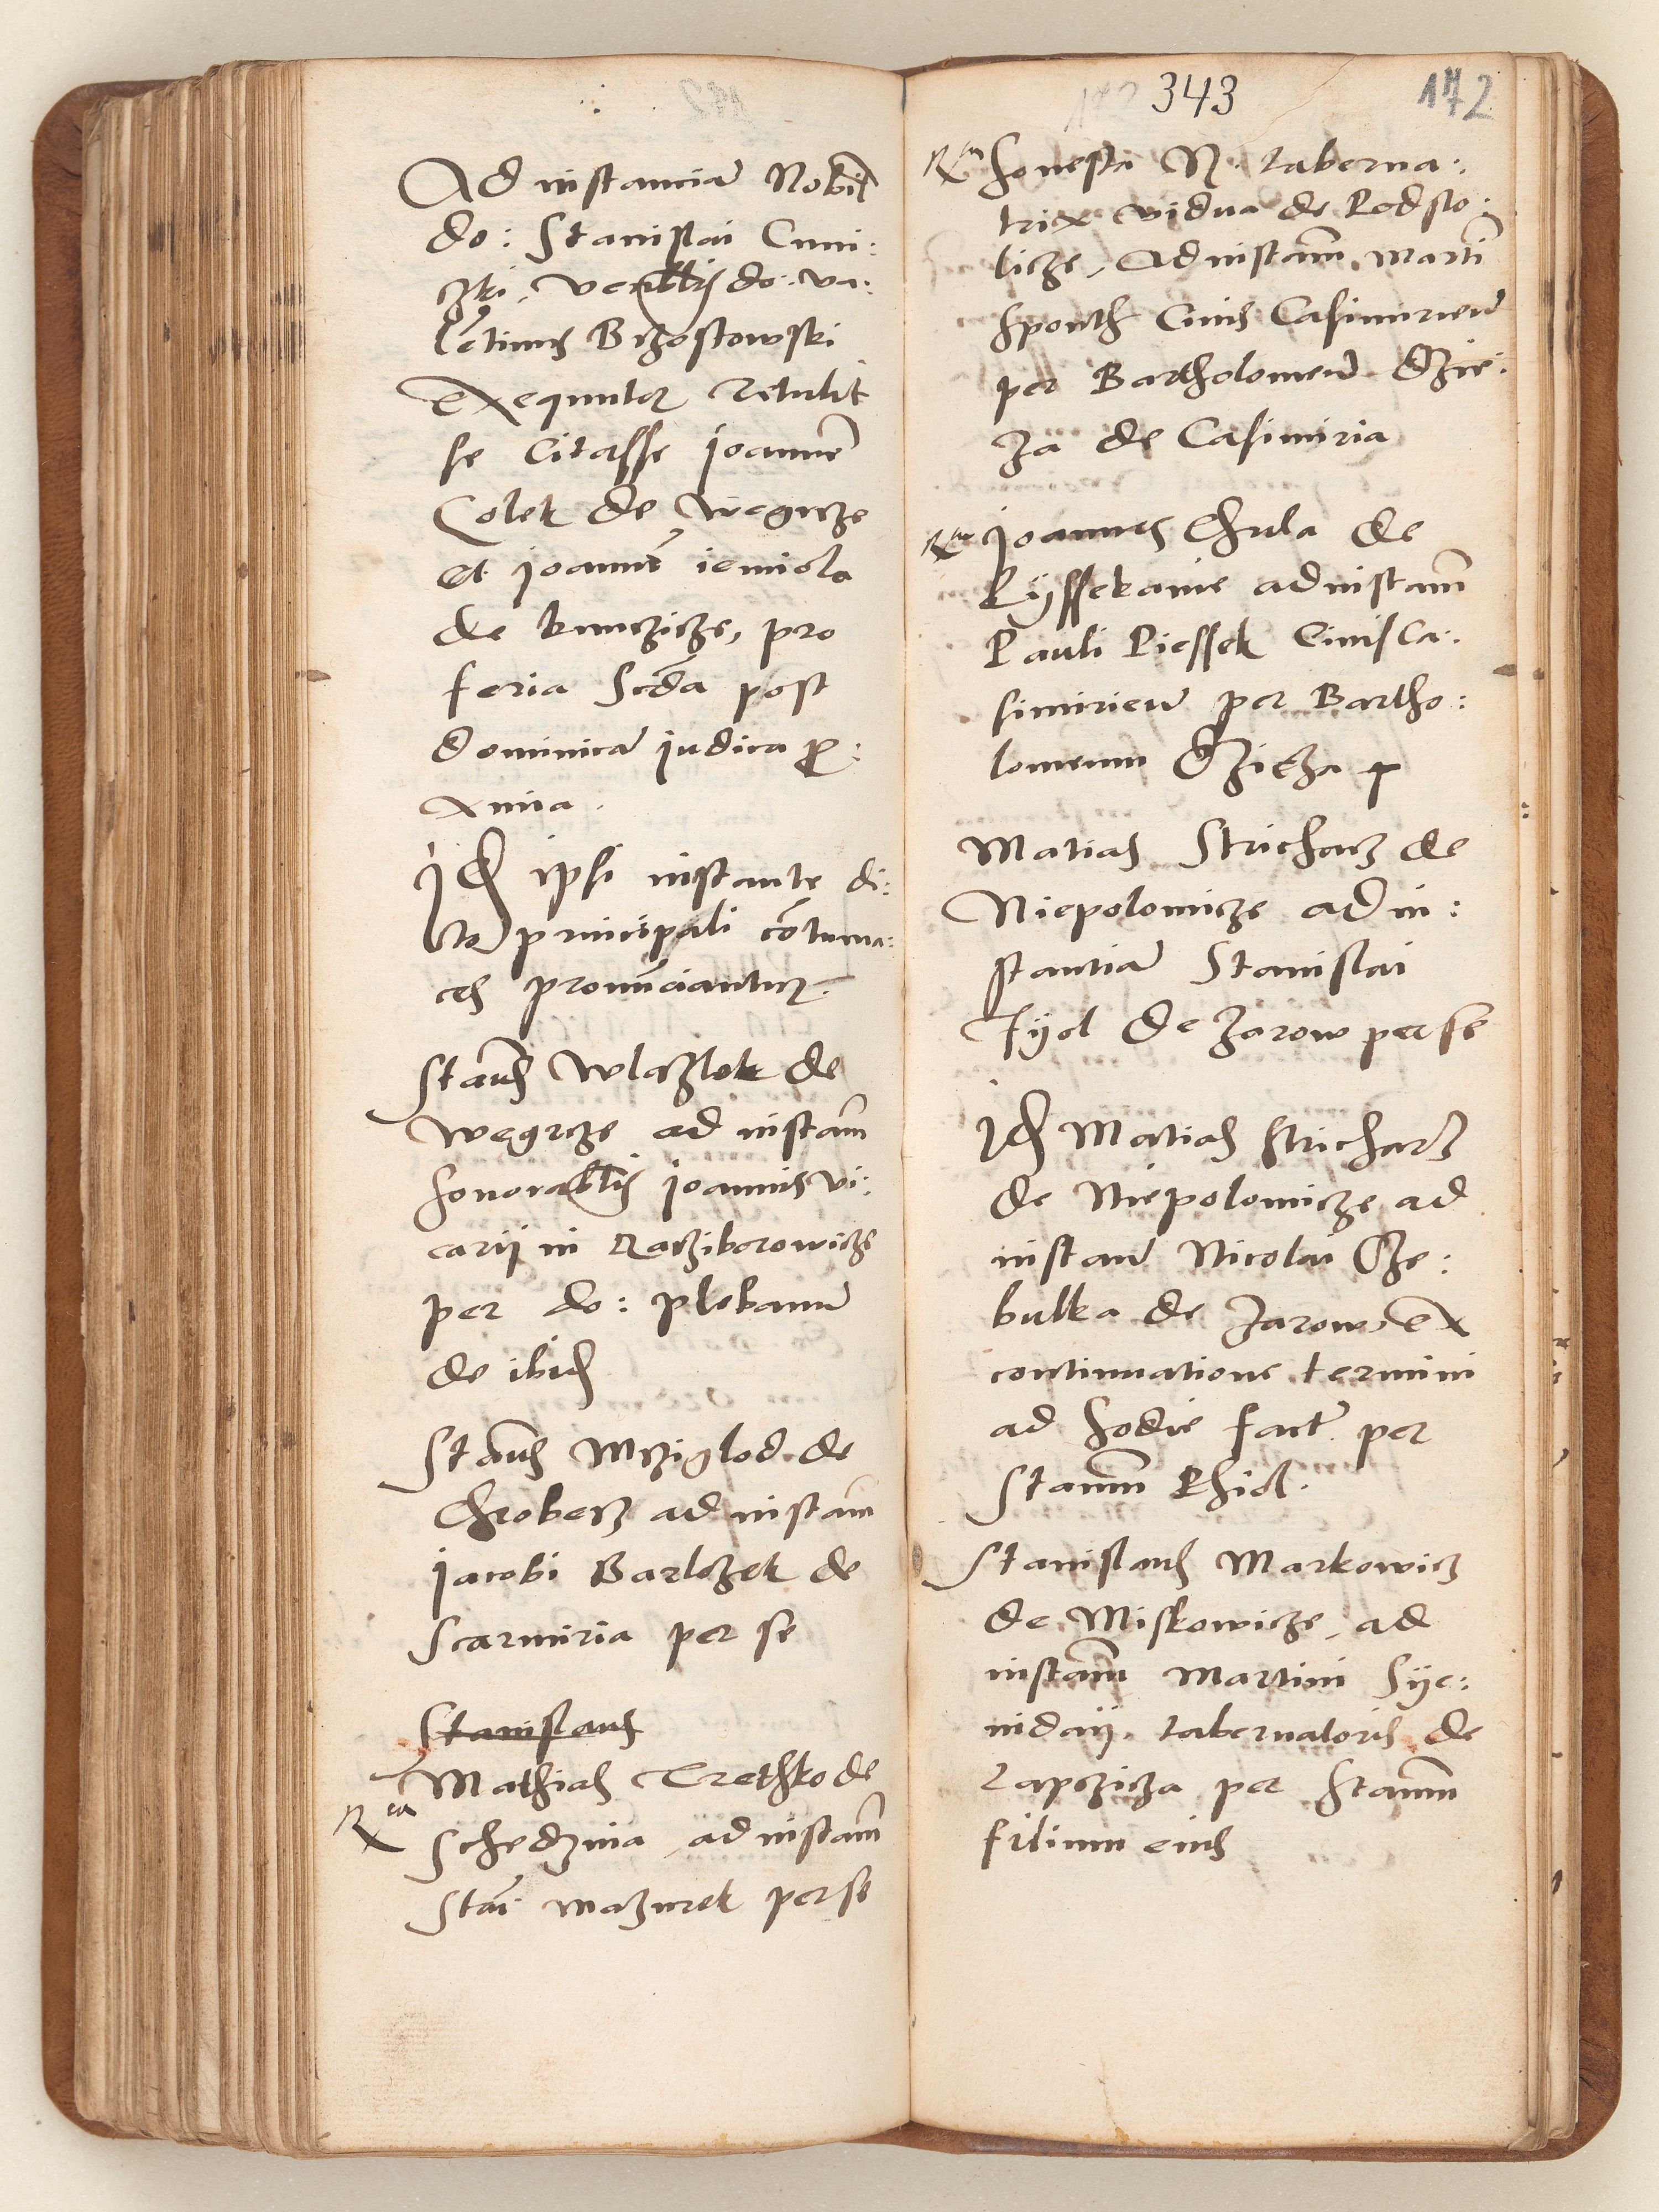 Ad instanciam Nobil
do: Stanislai Cuni:
czki, venerablis do: Va:
lentinus Brzostowski
exequutor retulit
se citasse Joannem
Golek de Wegrcze
et Joannem iemiola
de kunczicze, pro
feria scda post
dominicam iudica pro:
xima.
Jd ipsi instante di:
cto principali contuma:
ces pronunciantur.
Staus Wlaczlek de
Węgrcze ad instam
honorablis Joannis vi:
carij in Racziborowicze
per do: plebanum
de ibid
Staus Mrziglod de
Chroberz ad instam
Jacobi Barlczek de
Scarmiria per se
Stanislaus
Mathias Trethko de
Ra
Schedzina ad instam
Stai Mazurek per se
343
172
Rta honesta N. taberna:
trix vidua de Podsto:
licze, Ad instam Marti
Sponth civis Casimirien
per Bartholomeum Dzie:
za de Casimiria
Rta Joannes Chula de
Lyssekanie ad instam
Pauli Piessek civis Ca:
simirien per Bartho:
lomeum Dzieza
Matias Stricharz de
Niepolomicze ad in:
stantiam Stanislai
Fyol de Zarow per se
Jd Matias Stricharz
de Niepolomicze ad
instan Nicolai Cze:
bulka de Zarow, ex
continuatione termini
ad hodie fact. per
Staum Phiol.
Stanislaus Markowicz
de Miskowicze, ad
instam Martini Syc:
nidaij tabernatoris de
Lapczicza per Staum
filium eius